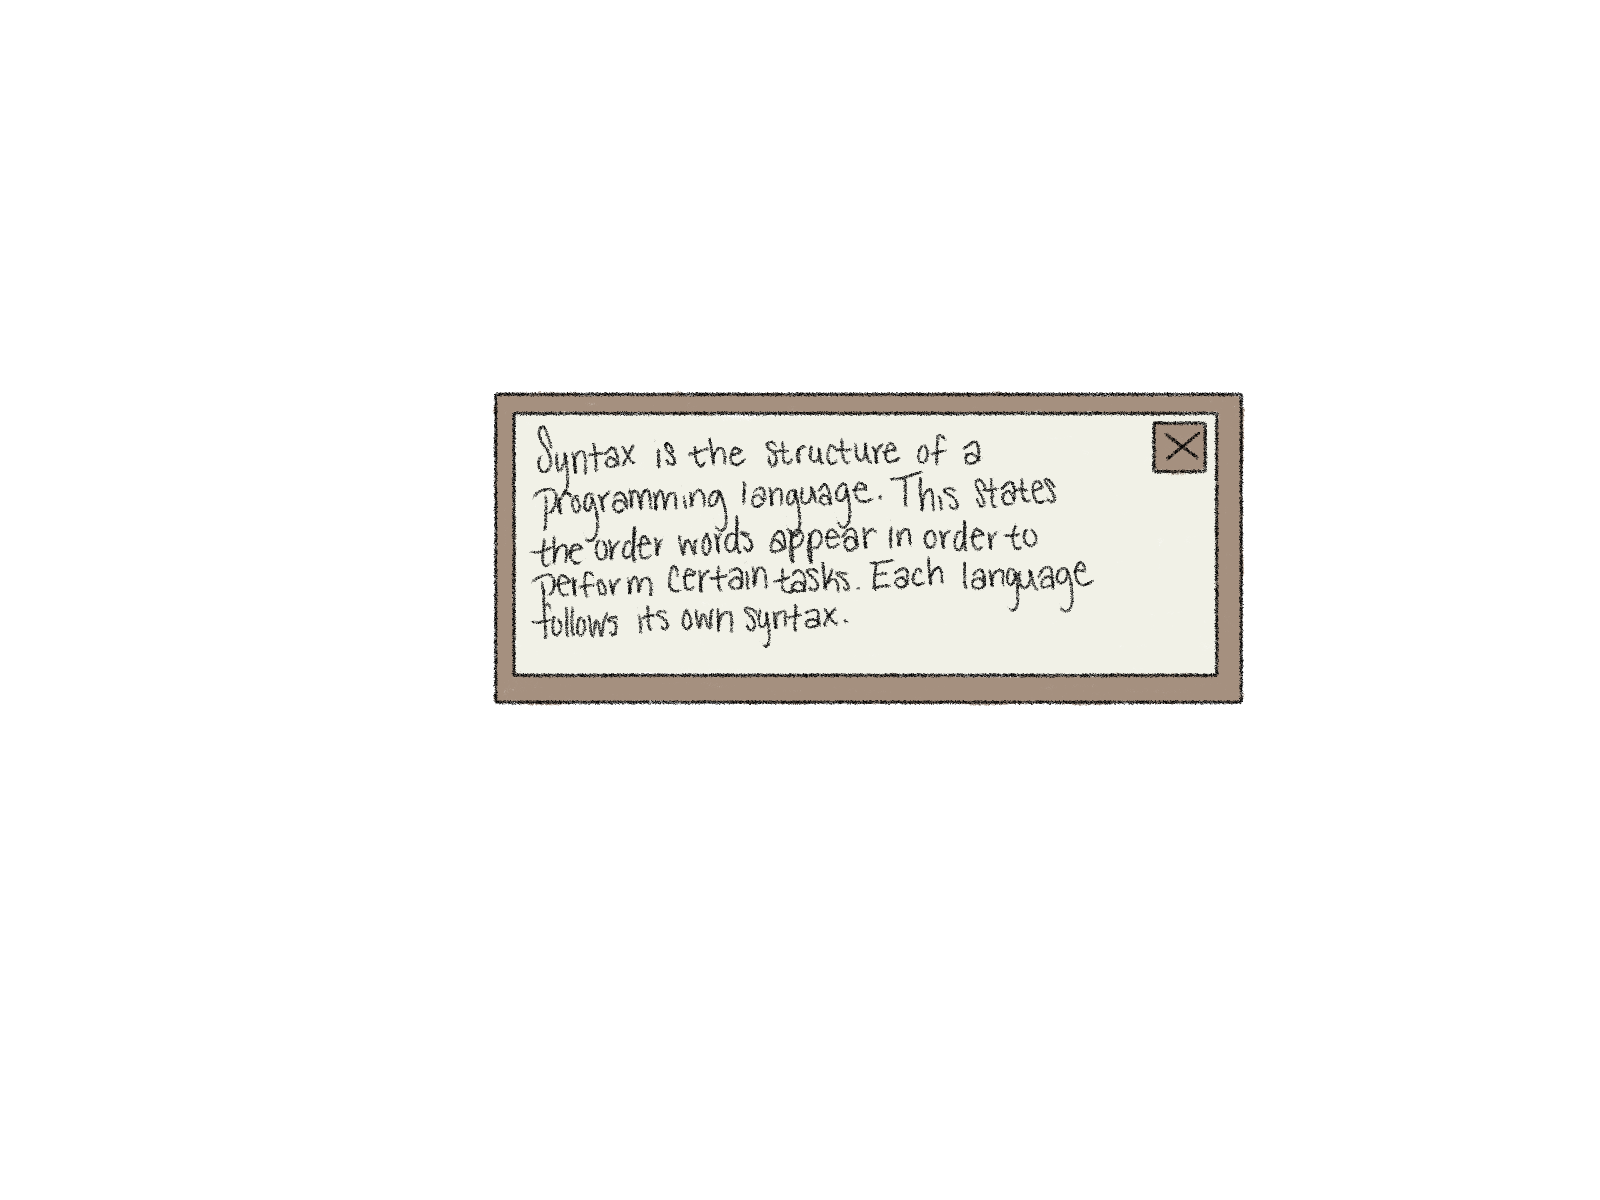 Syntax is the structure of a
programming language. This states
the order words appear in order to
perform certain tasks. Each language
follows its own syntax.